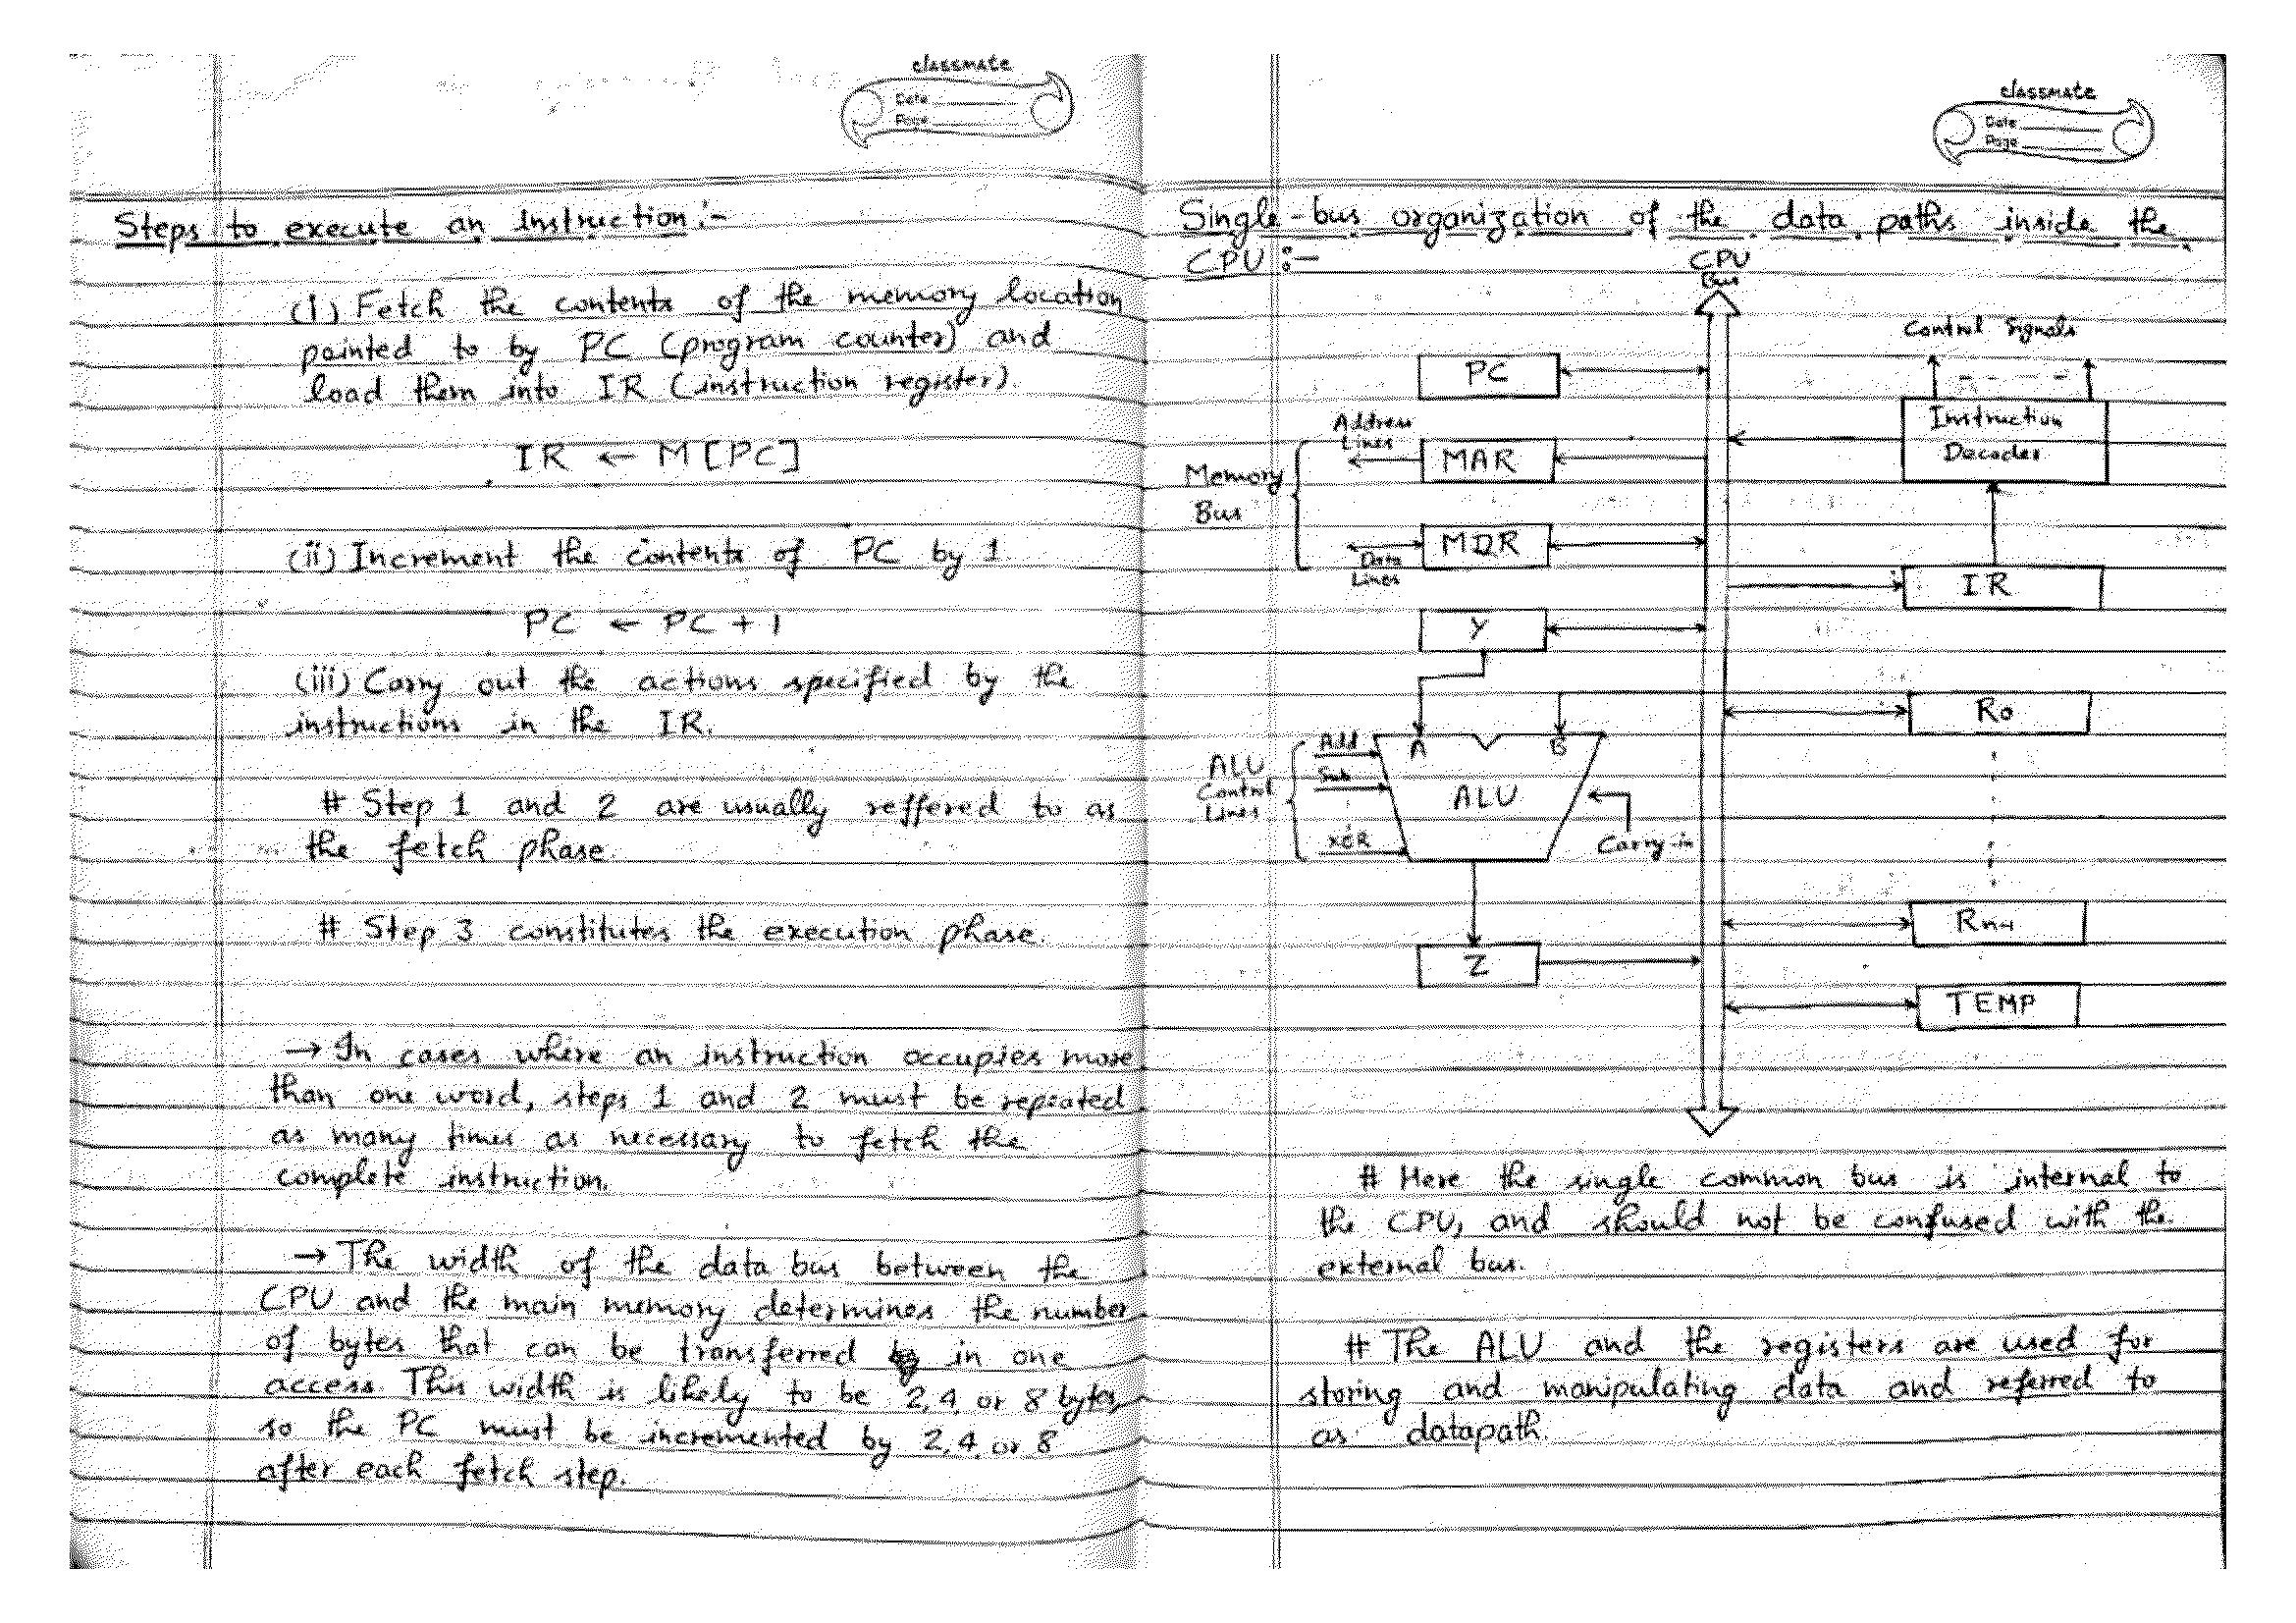 classmate
Date
Page
Steps to execute an Instruction :-
(i) Fetch the contents of the memory location
pointed to by PC (program counter) and
load them into IR (instruction register).
IR ← M [PC]
(ii) Increment the contents of PC by 1
PC ← PC + 1
(iii) Carry out the actions specified by the
instructions in the IR.
# Step 1 and 2 are usually reffered to as
the fetch phase.
# Step 3 constitutes the execution phase.
→ In cases where an instruction occupies more
than one word, steps 1 and 2 must be repeated
as many times as necessary to fetch the
complete instruction.
→ The width of the data bus between the
CPU and the main memory determines the number
of bytes that can be transferred in one
access. This width is likely to be 2, 4, or 8 bytes,
so the PC must be incremented by 2, 4, or 8
after each fetch step.
classmate
Date
Page
Single-bus organization of the data paths inside the
CPU :-
CPU
Bus
Control Signals
PC
Instruction
Decoder
Address
Lines
MAR
Memory
Bus
MDR
Data
Lines
IR
Y
R0
A
B
Add
Sub
XOR
ALU
Control
Lines
ALU
Carry-in
Rn-1
Z
TEMP
# Here the single common bus is internal to
the CPU, and should not be confused with the
external bus.
# The ALU and the registers are used for
storing and manipulating data and referred to
as datapath.